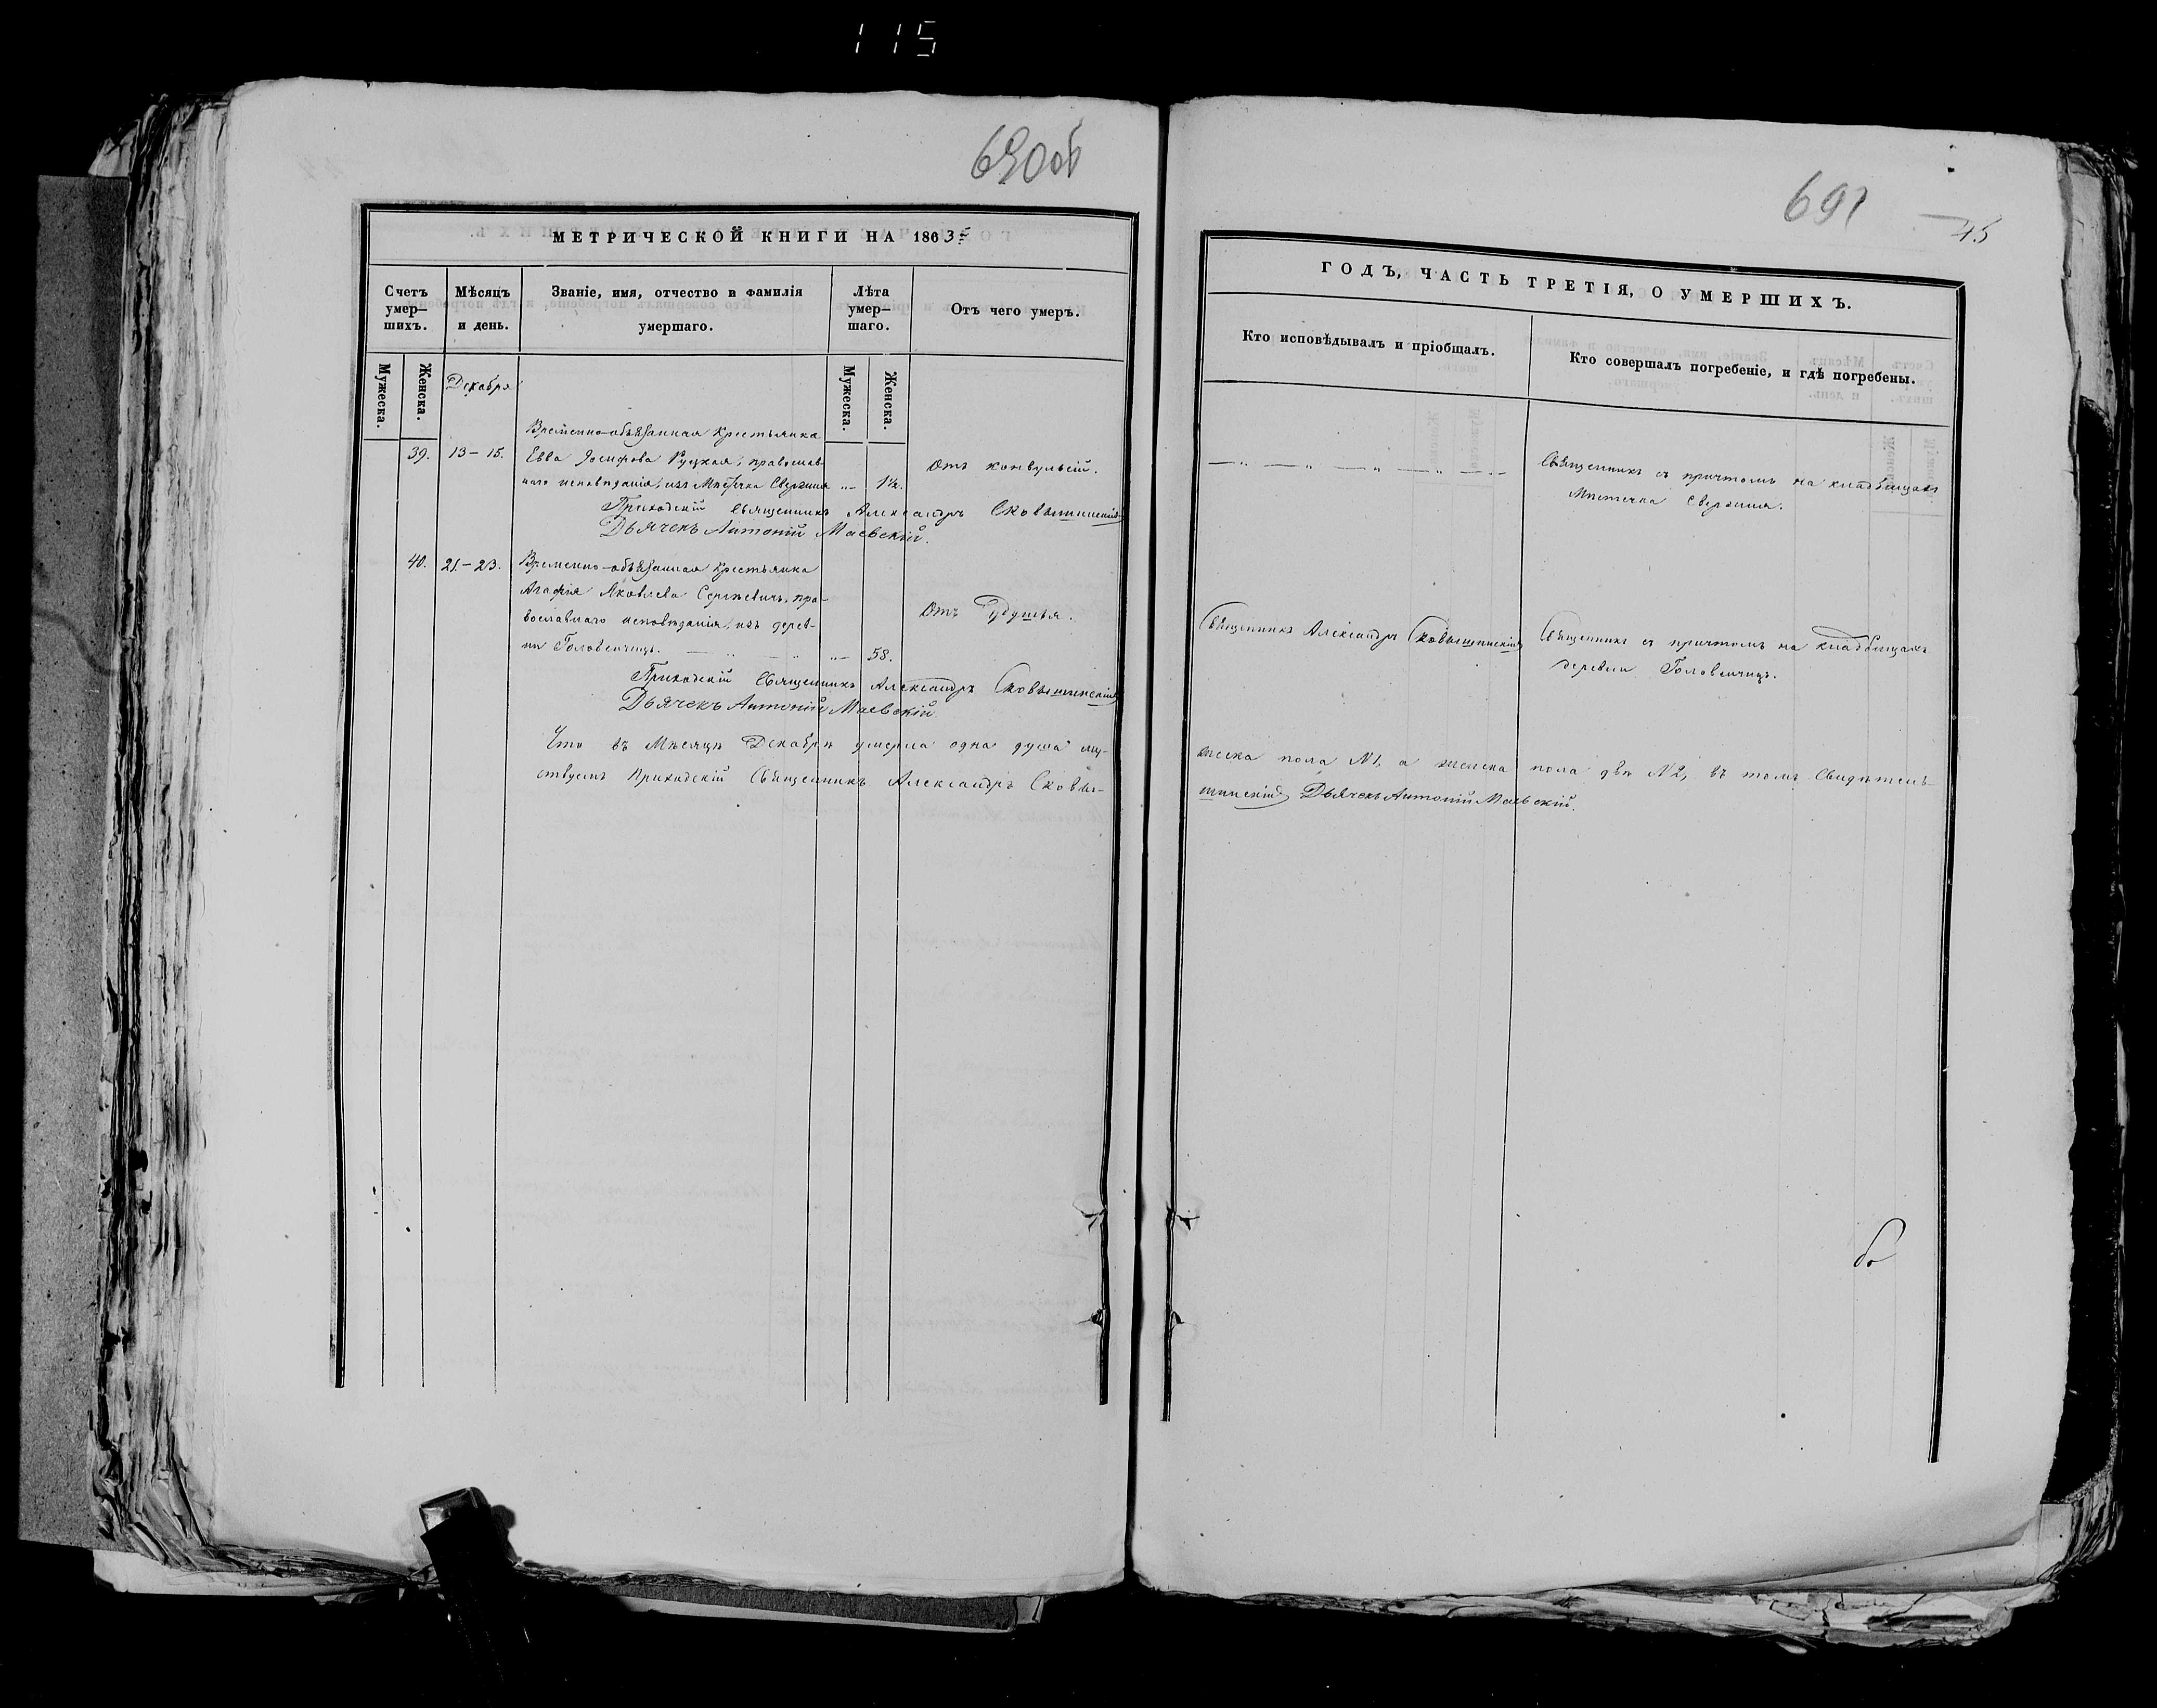 115
690об
МЕТРИЧЕСКОЙ КНИГИ НА 1863й
Счетъ умер–шихъ.
Мѣсяцъ и день.
Званіе, имя, отчество и фамилія умершаго.
Лѣта умер–шаго.
Отъ чего умеръ.
Мужеска.
Женска.
Мужеска.
Женска.
Декабря
Временно-обязанная крестьянка
39.
13–15.
Евва Іосифова Руцкая, православ-
наго исповѣданія, изъ Мѣстечка Свержня
1½.
Отъ конвульсій.
Приходскій Священникъ Александръ Сковышинскій
Дьячекъ Антоній Маевскій.
40.
21.–23.
Временно-обязанная крестьянка
Агафія Яковлева Сергѣевичъ, пра-
вославнаго исповѣданія, изъ дерев-
ни Головенчицъ.
58.
Отъ Удушья.
Приходскій Священникъ Александръ Сковышинскій
Дьячекъ Антоній Маевскій
Что въ Мѣсяцѣ Декабрѣ умерла одна душа му-
ствуемъ Приходскій Священникъ Александръ Сковы-
691
45
ГОДЪ, ЧАСТЬ ТРЕТІЯ, О УМЕРШИХЪ.
Кто исповѣдывалъ и пріобщалъ.
Кто совершалъ погребеніе, и гдѣ погребены.
Священникъ съ причтомъ на кладбищахъ
Мѣстечка Свержня.
Священникъ Александръ Сковышинскій
Священникъ съ причтомъ на кладбищахъ
деревни Головенчицъ.
жеска пола №1, а женска пола двѣ №2, въ томъ Свидѣтель-
шинскій Дьячекъ Антоній Маевскій.